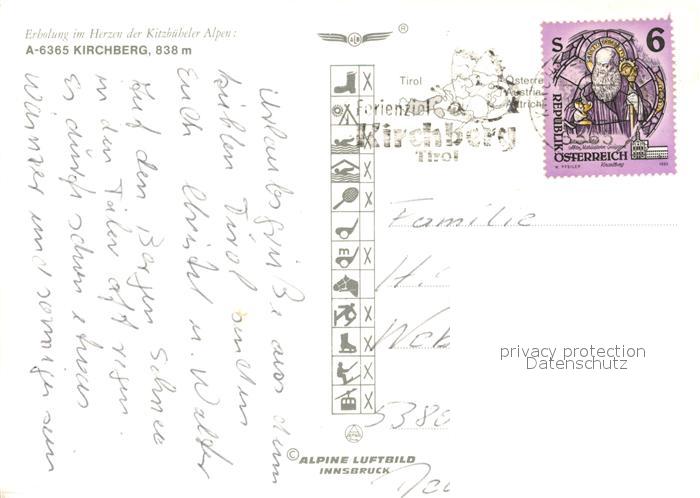 Erholung im Herzen der Kitzbüheler Alpen:
A-6365 KIRCHBERG, 838 m
Urlaubsgrüße aus dem
kühlen Tirol senden
Euch Christel u. Walter
Auf den Bergen Schnee
in den Täler oft regen.
Es dürfte schon etwas
wärmer und sonniger sein
ALB
®
Tirol
Österre
Austria
Autrich
Ferienziel
Kirchberg
Tirol
S
6
REPUBLIK
ÖSTERREICH
Familie
H.
Web
5380
privacy protection
Datenschutz
© ALPINE LUFTBILD
INNSBRUCK